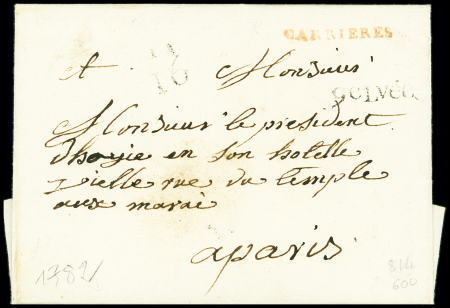 CARRIERES
A Monsieur
Monsieur le president
d'hozie en son hotelle
vielle rue du temple
aux marai
a paris
1782
814
600